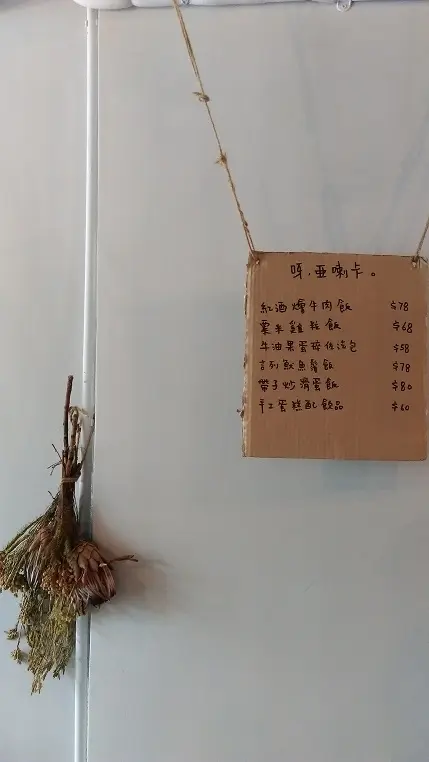 呀.亜喇卡。
紅酒燴牛肉飯 $78
粟米雞粒飯 $68
牛油果蛋 包 $58
吉列魷魚鬚飯 $78
帶子炒滑蛋飯 $80
手工蛋糕配飲品 $60